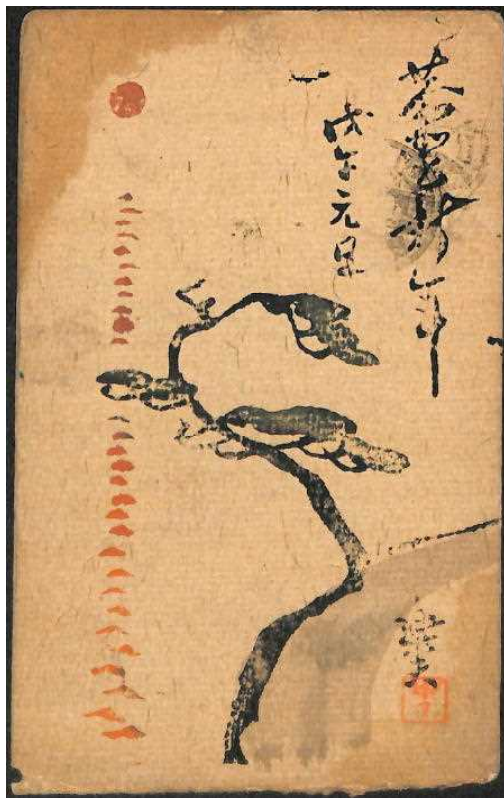 恭賀新年
戊午元旦